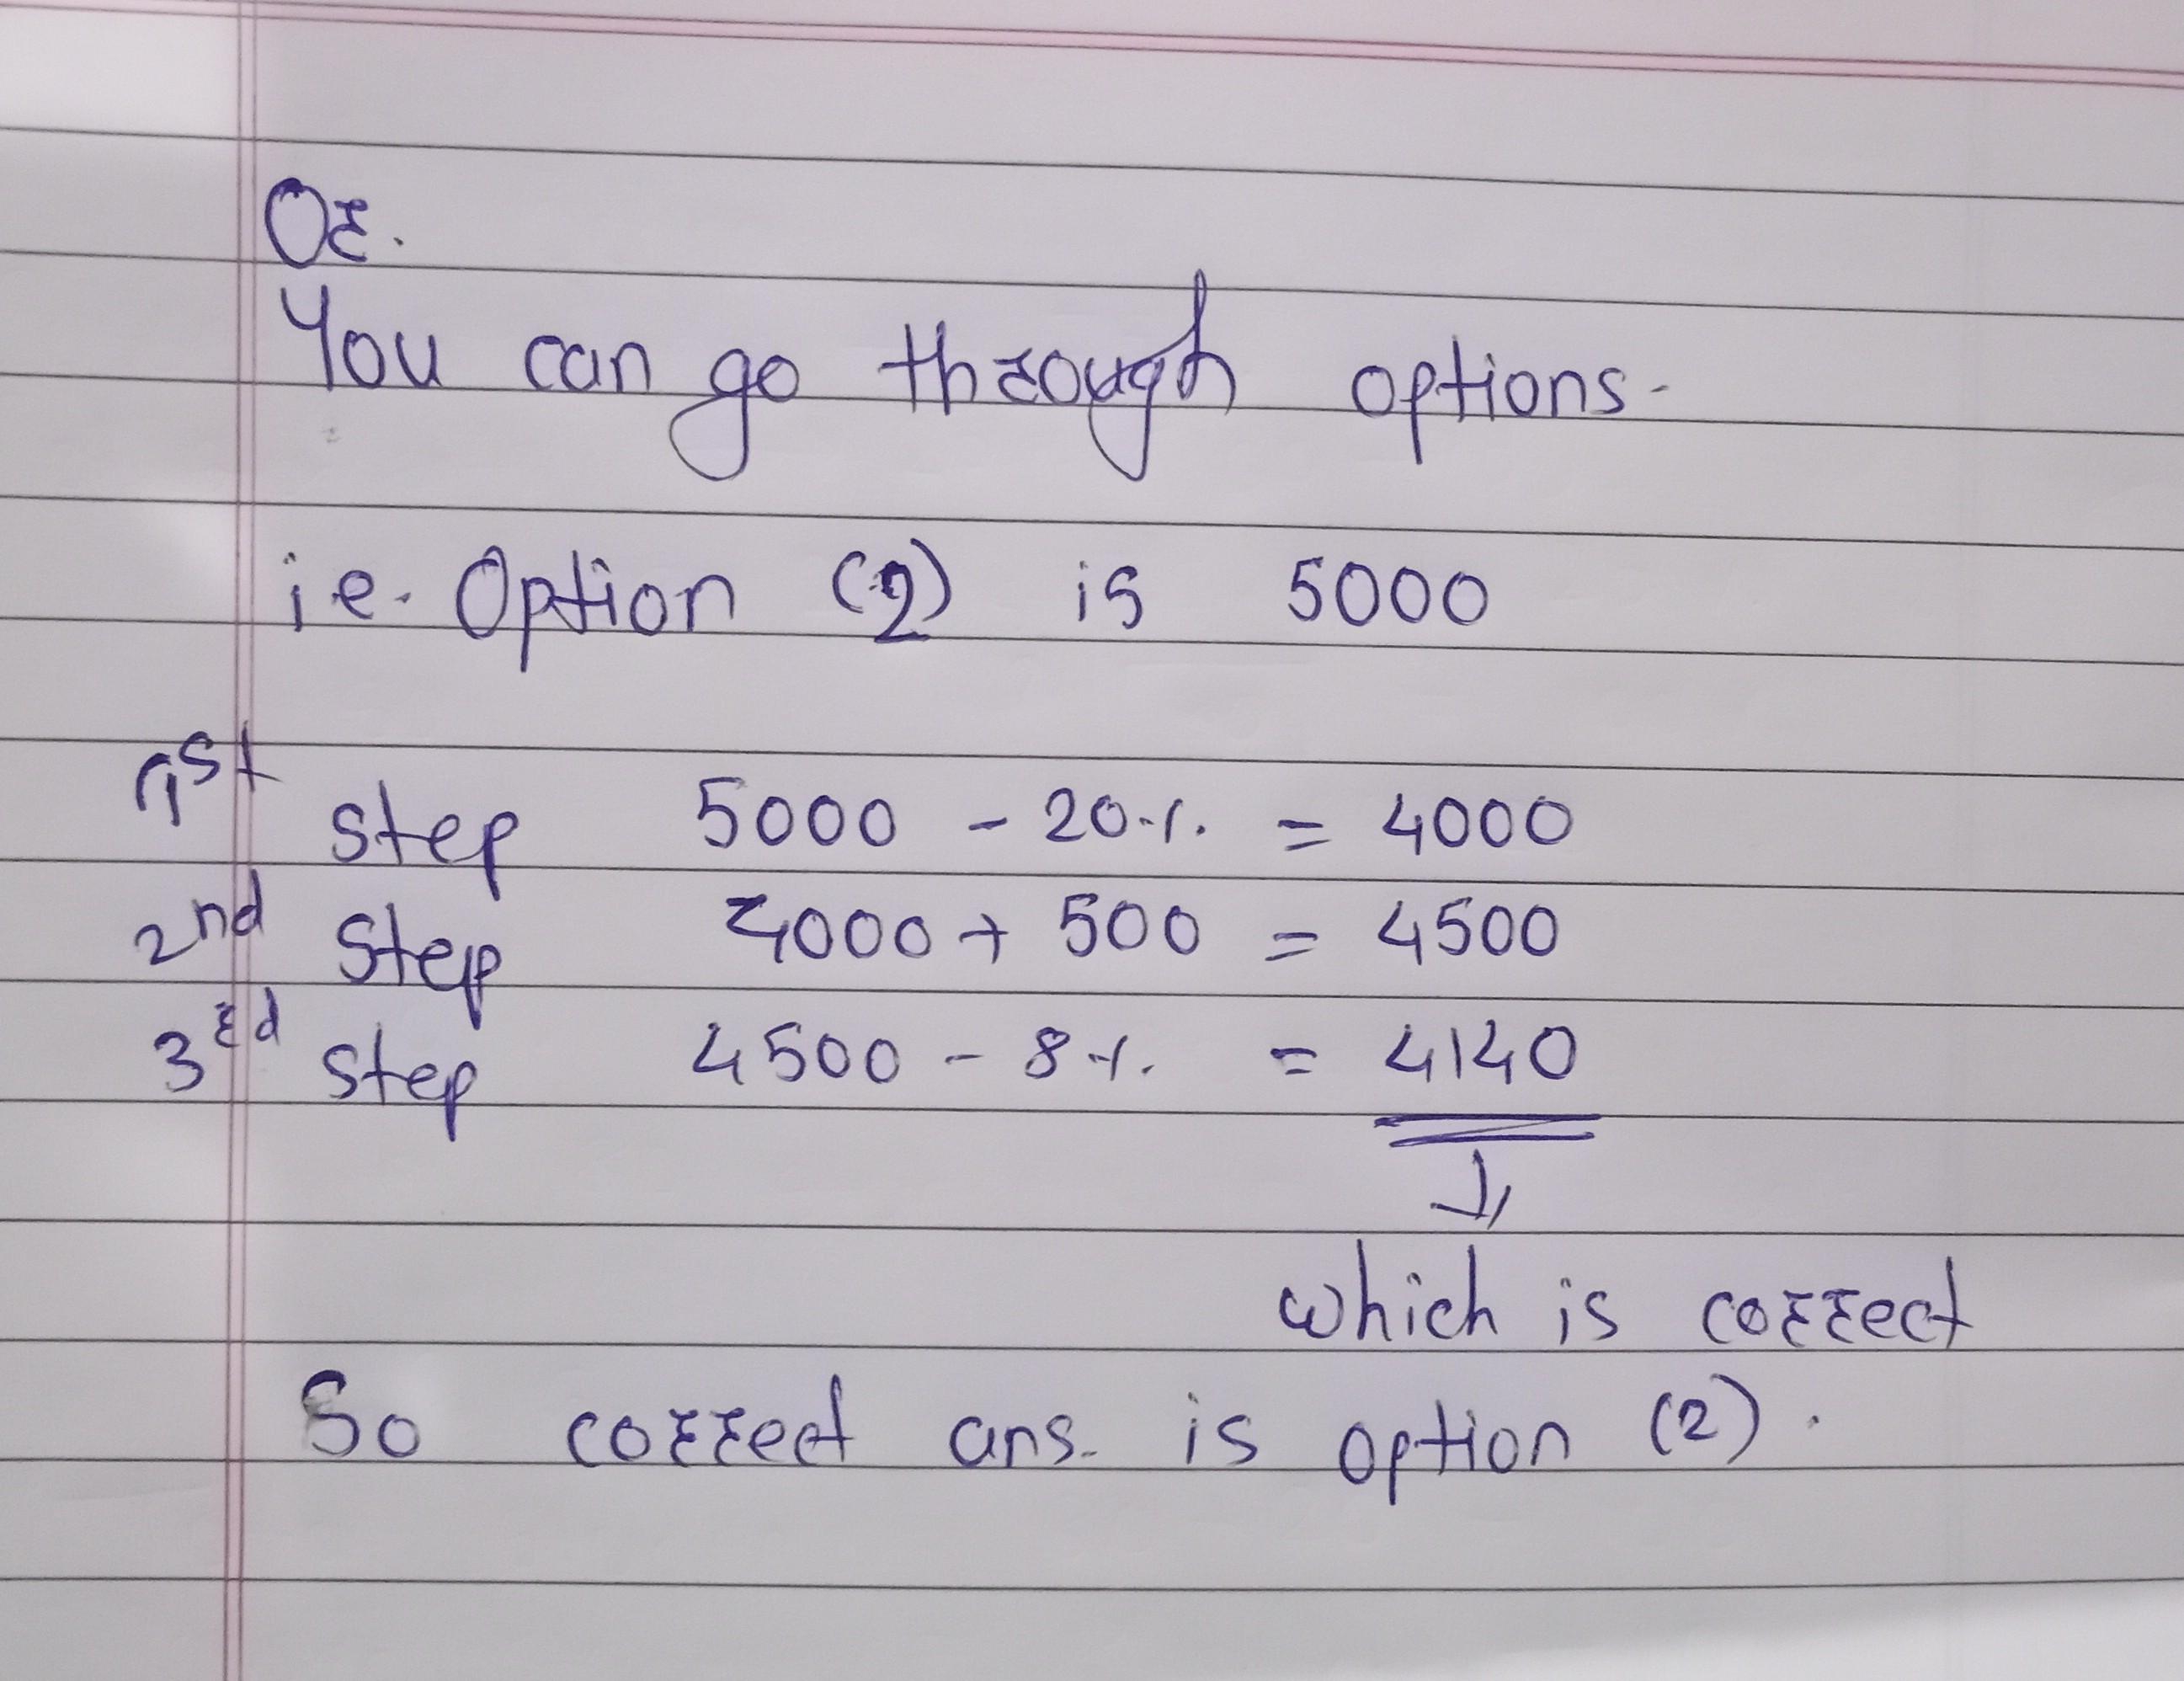 Or.
You can go through options.
i.e. Option (2) is 5000
1st step 5000 - 20% = 4000
2nd step 4000 + 500 = 4500
3rd step 4500 - 8% = 4140
which is correct
So correct ans. is option (2).